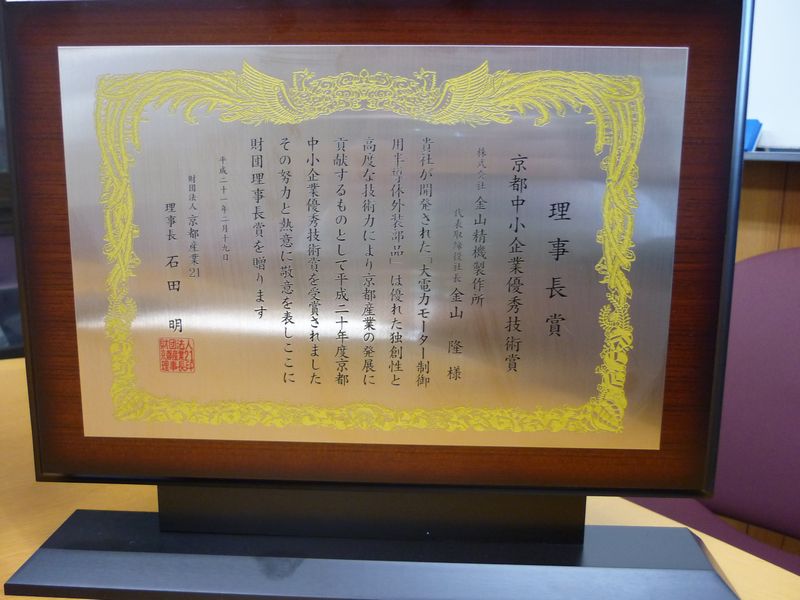 理事長賞
京都中小企業優秀技術賞
株式会社 金山精機製作所
代表取締役社長 金山 隆 様
貴社が開発された「大電力モーター制御
用半導体外装部品」は優れた独創性と
高度な技術力により京都産業の発展に
貢献するものとして平成二十年度京都
中小企業優秀技術賞を受賞されました
その努力と熱意に敬意を表しここに
財団理事長賞を贈ります
平成二十一年二月十九日
財団法人 京都産業21
理事長 石田 明